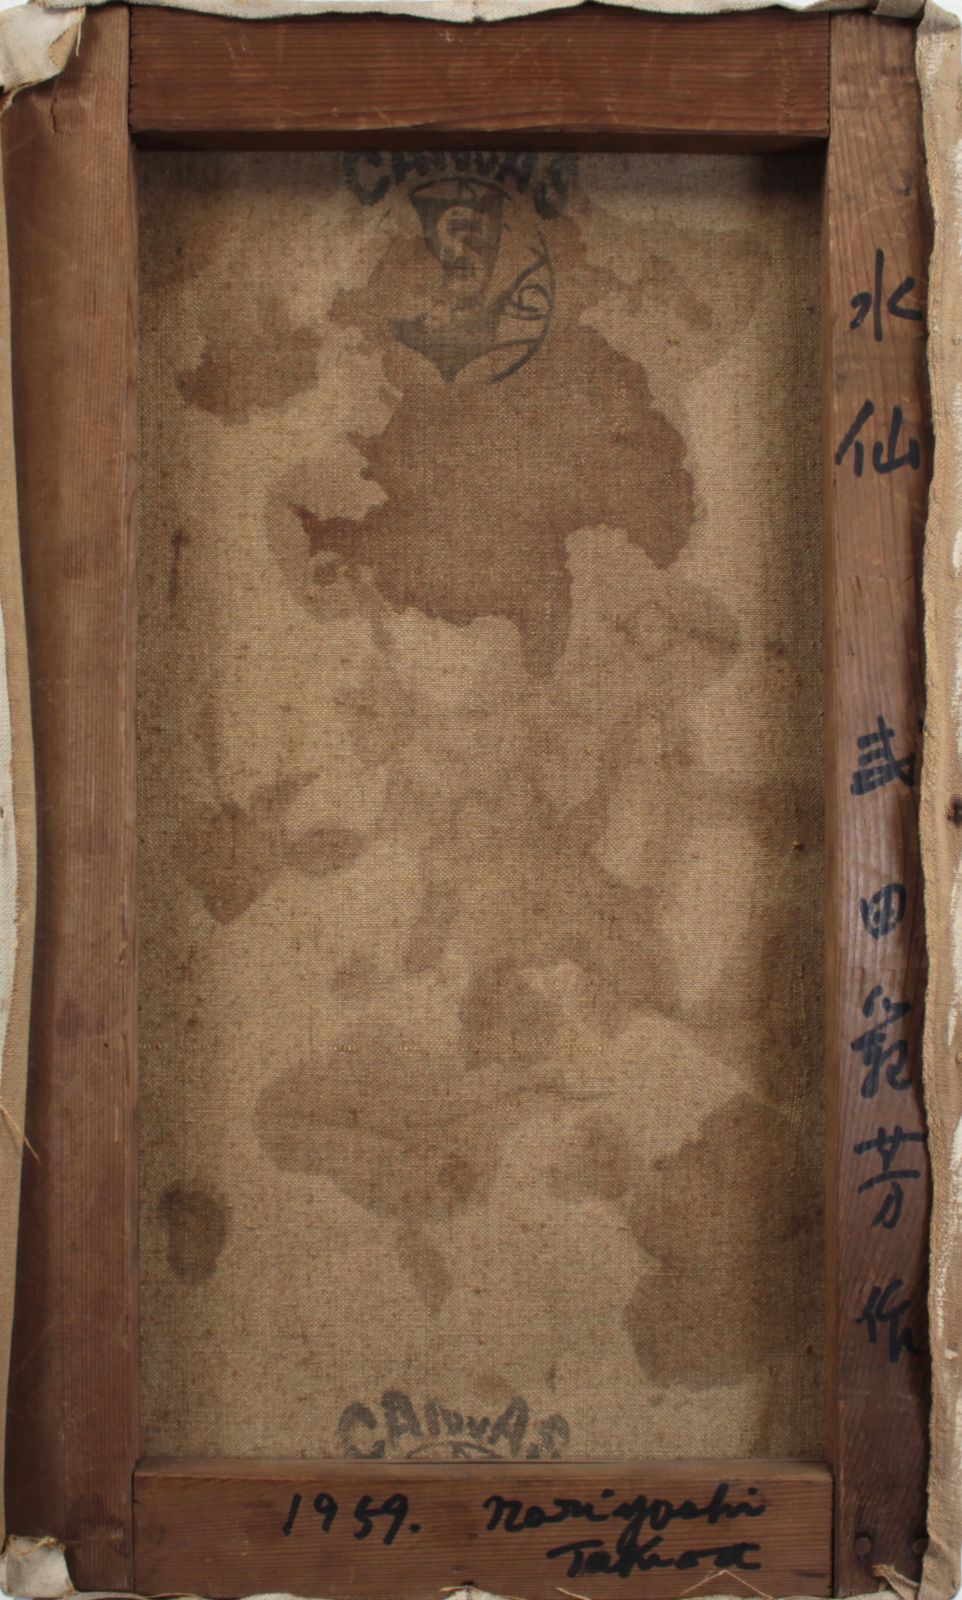 CANVAS
S
水仙 武田範芳作
CANVAS
1959. Noriyoshi
Takeda